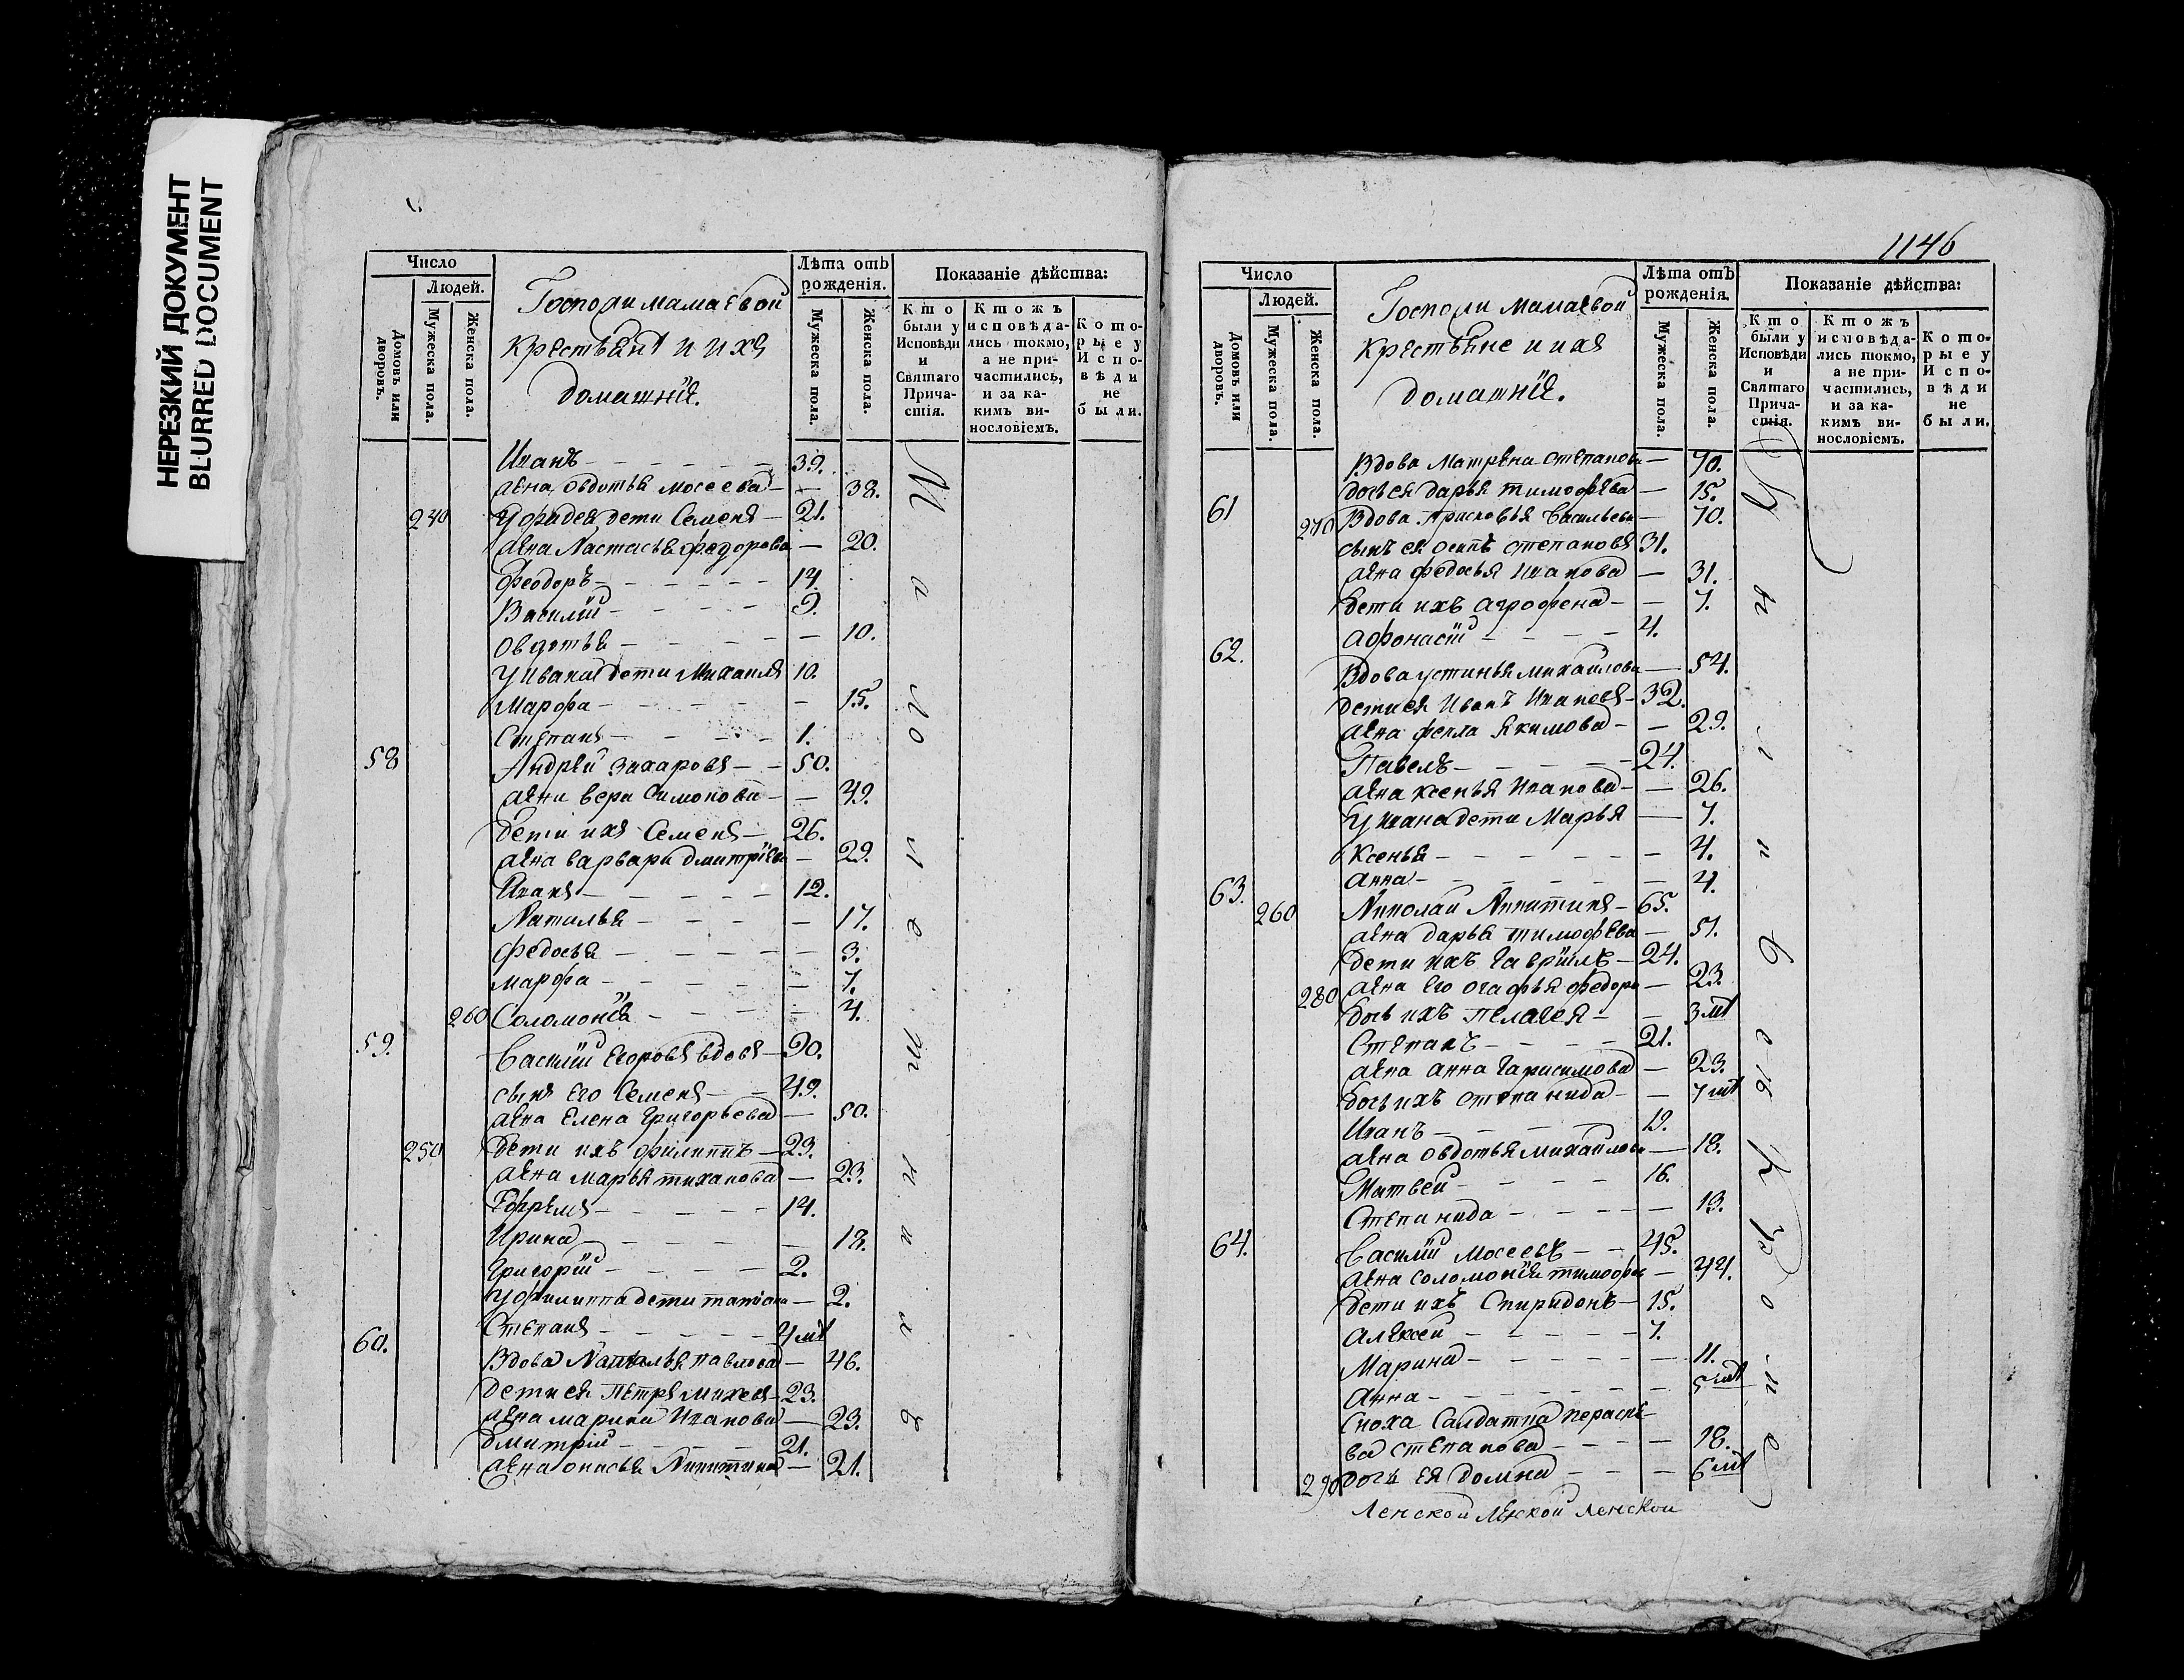 НЕРЕЗКИЙ ДОКУМЕНТ
BLURRED DOCUMENT
Число
Людей.
Домовъ или дворовъ.
Мужеска пола.
Женска пола.
Госпожи Мамаевой
крестьяне и ихъ
домашнїя.
Лѣта отъ рожденія.
Мужеска пола.
Женска пола.
Показаніе дѣйства:
Кто были у Исповѣди и Святаго Причастія.
Ктожъ исповѣдались токмо, а не причастились, и за какимъ винословіемъ.
Которые у Исповѣди не были.
Иванъ 39.
жена Овдотья Мосеева 38.
240 дети Семенъ 21.
жена Настасья федорова 20.
Феодоръ 14.
Василїй 9.
Овдотья 10.
У Ивана дети Михаила 10.
Марфа 15.
Степанъ 1.
58 Андрей Захаровъ 50.
жена вера Симонова 49.
дети ихъ Семенъ 26.
жена варвара дмитрїева 29.
Иванъ 12.
Наталья 17.
федосья 3.
марфа 7.
260 Соломонїя 4.
59. Василїй Егоровъ вдовъ 90.
сынъ Его Семенъ 49.
жена Елена Григорьева 50.
250 дети ихъ филиппъ 23.
жена марья тиханова 23.
Ефремъ 14.
Ирина 18.
Григорїй 2.
У филиппа дети татиана 2.
Степанъ
60. Вдова Наталья павлова 46.
дети ея Петръ Михеевъ 23.
жена марина Иванова 23.
дмитрїй 21.
жена Никитина 21.
1146
Число
Людей.
Домовъ или дворовъ.
Мужеска пола.
Женска пола.
Госпожи Мамаевой
крестьяне и ихъ
домашнїя.
Лѣта отъ рожденія.
Мужеска пола.
Женска пола.
Показаніе дѣйства:
Кто были у Исповѣди и Святаго Причастія.
Ктожъ исповѣдались токмо, а не причастились, и за какимъ винословіемъ.
Которые у Исповѣди не были.
Вдова Матрена Степанова 70.
дочь ея дарья тимофева 15.
61 270 Вдова Прасковья Васильева 70.
сынъ ея осипъ степановъ 31.
жена федосья Иванова 31.
дети ихъ агрофена 7.
афонасїй 4.
62. Вдова устинья михайлова 54.
дети ея Иванъ Ивановъ 32.
жена фекла якимова 29.
Павелъ 24.
жена ксенья Иванова 26.
У Ивана дети Марья 7.
Ксенья 4.
Анна 4.
63. 260 Николай Никитинъ 65.
жена дарья тимофева 51.
дети ихъ Гаврїилъ 24.
280 жена его огафья федоро 23.
дочь ихъ Пелагея
Степанъ 21.
жена анна Гарасимова 23.
дочь ихъ степанида
Иванъ 19.
жена овдотья михайлова 18.
Матвей 16.
Степанида 13.
64. Василїй Мосеевъ 45.
жена соломонїя тимофее 44.
дети ихъ Спиридонъ 15.
алексей 7.
Марина 11.
анна
Сноха Салдатка Параске-
ва степанова 18.
290 дочь ея домна
Ленской Ленской Ленской